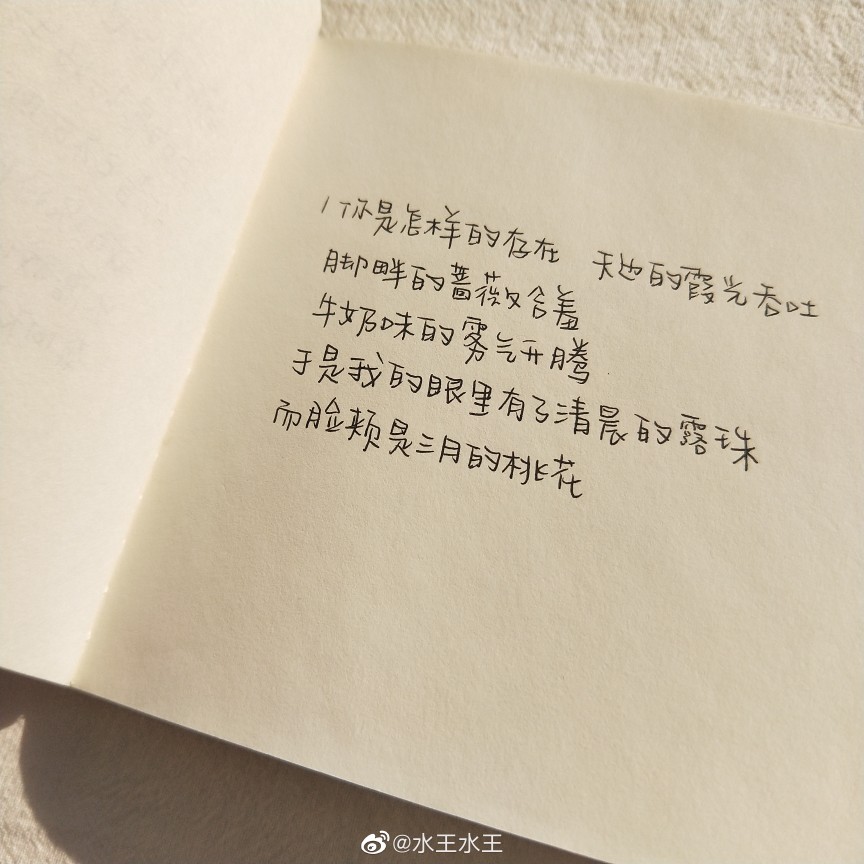 1 你是怎样的存在 天地的霞光吞吐
脚畔的蔷薇含羞
牛奶味的雾气升腾
于是我的眼里有了清晨的露珠
而脸颊是三月的桃花
@水王水王